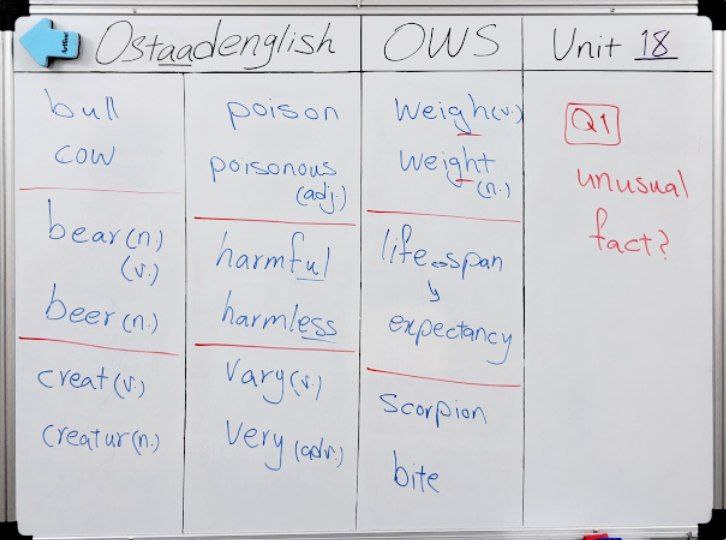 Ostaadenglish
OWS
Unit 18
bull
cow
bear (n.)
(v.)
beer (n.)
creat (v.)
creatur (n.)
poison
poisonous
(adj.)
harmful
harmless
vary (v.)
very (adv.)
weigh (v.)
weight
(n.)
life span
expectancy
scorpion
bite
Q1
unusual
fact?